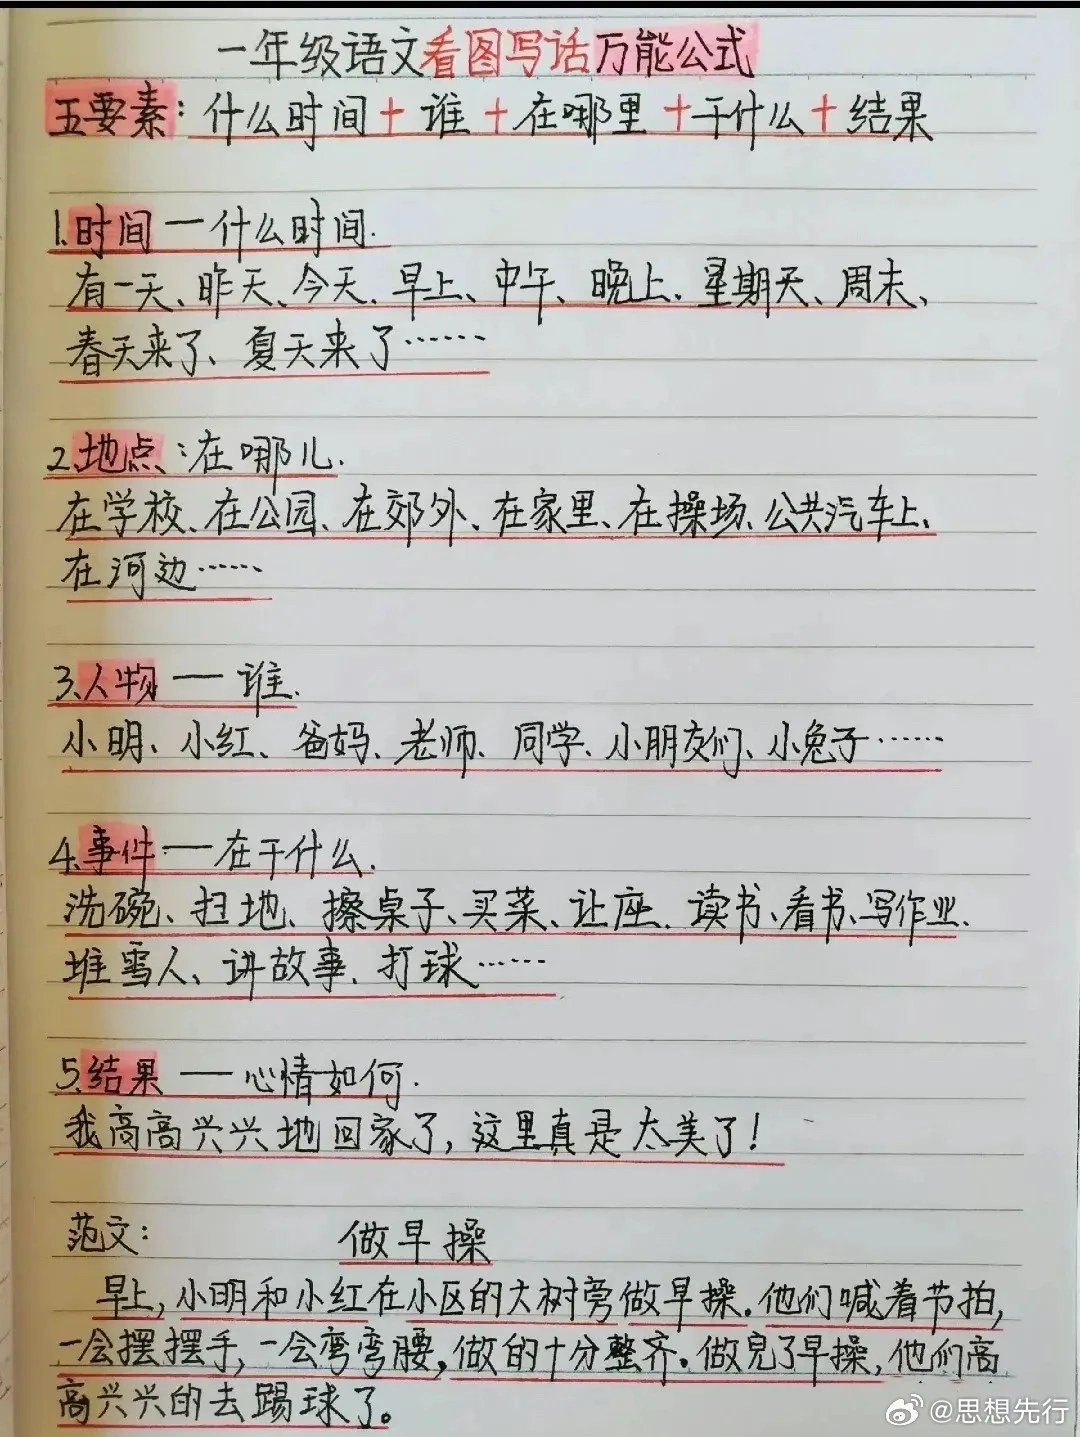 一年级语文看图写话万能公式
五要素：什么时间＋谁＋在哪里＋干什么＋结果
1.时间一什么时间.
有一天、昨天、今天、早上、中午、晚上、星期天、周末、
春天来了、夏天来了……
2.地点：在哪儿.
在学校、在公园、在郊外、在家里、在操场、公共汽车上、
在河边……
3.人物——谁.
小明、小红、爸妈、老师、同学、小朋友们、小兔子……
4.事件——在干什么.
洗碗、扫地、擦桌子、买菜、让座、读书、看书、写作业、
堆雪人、讲故事、打球……
5.结果——心情如何.
我高高兴兴地回家了，这里真是太美了！
范文：
做早操
早上，小明和小红在小区的大树旁做早操。他们喊着节拍，
一会摆摆手，一会弯弯腰，做的十分整齐。做完了早操，他们高
高兴兴的去踢球了。
@思想先行